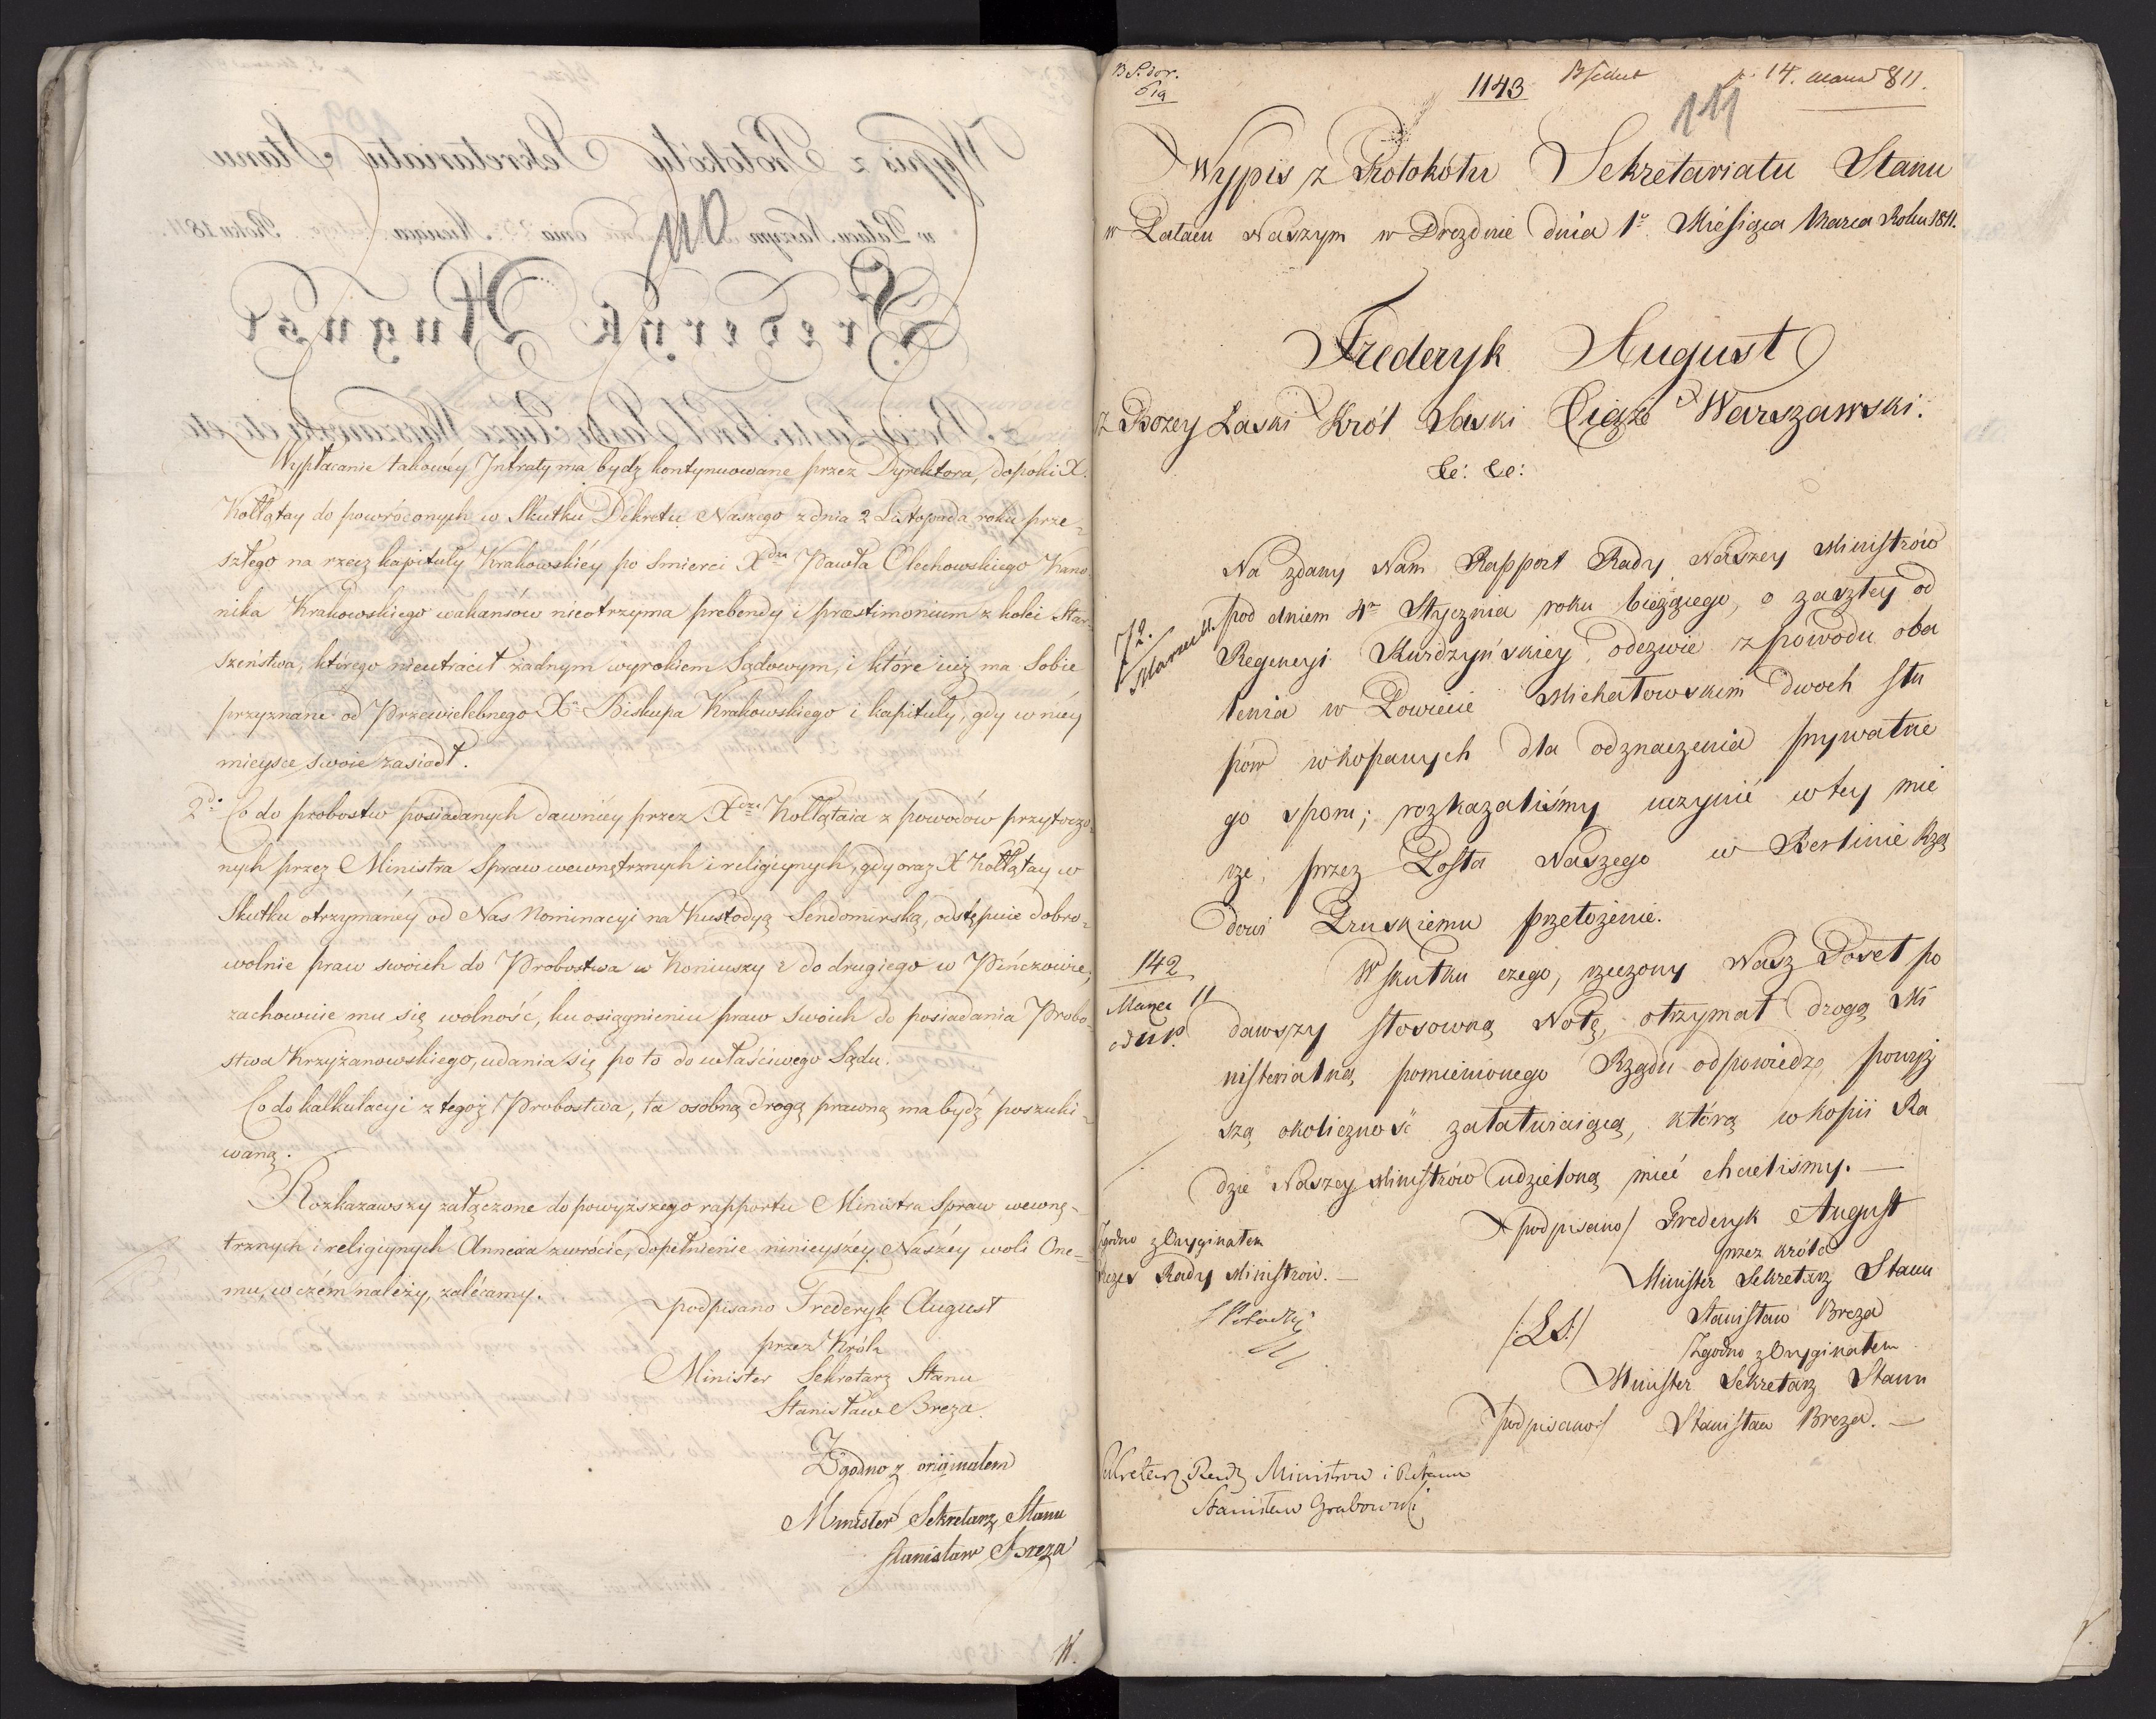 110
Wypłacanie takowéy Intraty ma bydź kontynuowane przez Dyrektora, dopóki X.
Kołłątay do powróconych w Skutku Dekretu Naszego z dnia 2 Listopada roku prze-
szłego na rzecz kapituły Krakowskiéy po śmierci Xdza Pawła Olechowskiego Kano-
nika Krakowskiego wakansów nieotrzyma prebendy i præstimonium z kolei Star-
szeństwa, którego nieutracił żadnym wyrokiem Sądowym, i które iuż ma Sobie
przyznane od Przewielebnego Xa Biskupa Krakowskiego i kapituły, gdy w niéy
mieysce swoie zasiadł.
2do Co do probostw posiadanych dawniéy przez Xdza Kołłątaia z powodów przytoczo-
nych przez Ministra Spraw wewnętrznych i religiynych, gdy oraz X Kołłątay w
Skutku otrzymanéy od Nas Nominacyi na Kustodyą Sendomirską, odstępuie dobro-
wolnie praw swoich do Probostwa w Koniuszy i do drugiego w Pińczowie,
zachowuie mu się wolność, ku osiągnieniu praw swoich do posiadania Probo-
stwa Krzyżanowskiego, udania się po to do właściwego Sądu.
Co do kalkulacyi z tegoż Probostwa, ta osobną drogą prawną ma bydź poszuki-
waną.
Rozkazawszy załączone do powyższego rapportu Ministra Spraw wewnę-
trznych i religiynych Annexa zwrócić, dopełnienie ninieyszéy Naszéy woli One-
mu, w czém należy, zalécamy.
podpisano Frederyk August
przez Króla
Minister Sekretarz Stanu
Stanisław Breza
Zgodno z originałem
Minister Sekretarz Stanu
Stanisław Breza
1143
14. marca 811.
111
Wypis z Protokółu Sekretariatu Stanu
w Pałacu Naszym w Dreznie dnia 1o Miesiąca Marca Roku 1811.
Frederyk August
z Bozey Łaski Król Saski Xiąże Warszawski.
&c: &c:
Na zdany Nam Rapport Rady Naszey Ministrów
pod dniem 4o Stycznia roku bieżącego, o zaszłey od
72.
Regencyi Kwidzyńskiey odezwie z powodu oba
lenia w Powiecie Michałowskim dwoch słu
pów wkopanych dla odznaczenia prywatne
go sporu; rozkazaliśmy uczynić w tey mie
rze, przez Posła Naszego w Berlinie Rzą
dowi Pruskiemu przełożenie.
142
Marca 11
W skutku czego, rzeczony Nasz Poseł po
dawszy stosowną Notę, otrzymał drogą Mi
nisterialną pomienionego Rządu odpowiedz, powyż
szą okoliczność załatwiaiącą, którą w kopii Ra
dzie Naszey Ministrów udzieloną mieć chcieliśmy. —
podpisano/ Frederyk August
przez Króla
Minister Sekretarz Stanu
Stanisław Breza
/:LS:/
Zgodno z Oryginałem
Minister Sekretarz Stanu
podpisano/ Stanisław Breza. —
Zgodno z Oryginałem
Prezes Rady Ministrów. —
Sekretarz Rady Ministrow i R Stanu
Stanisław Grabowski